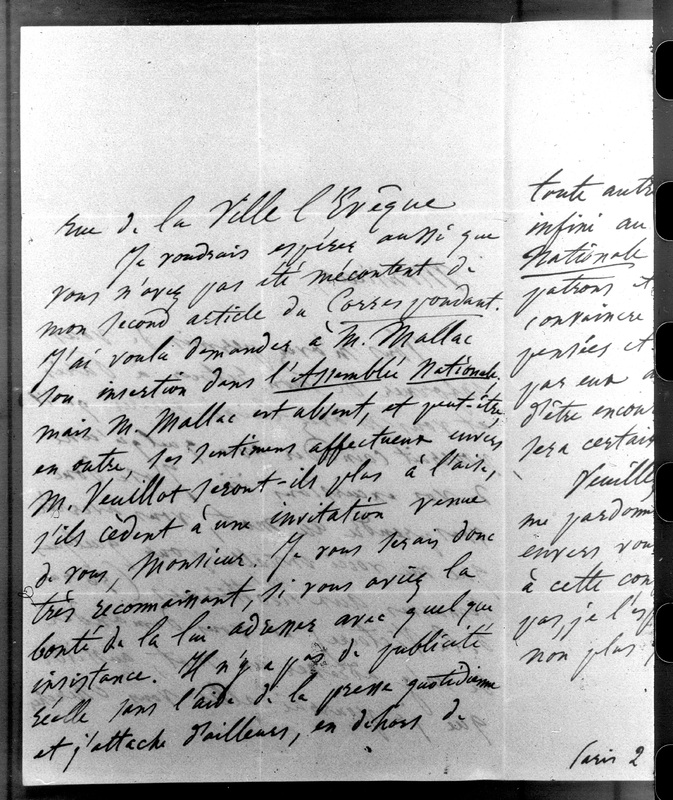 rue de la Ville l'Evêque
Je voudrais espérer aussi que
vous n'avez pas été mécontent de
mon second article du Correspondant.
J'ai voulu demander à M. Mallac
son insertion dans l'Assemblée Nationale,
mais M. Mallac est absent, et peut-être
en outre, ses sentimens affectueux envers
M. Veuillot seront-ils plus à l'aise,
s'ils cèdent à une invitation venue
de vous, Monsieur. Je vous serais donc
très reconnaissant, si vous aviez la
bonté de la lui adresser avec quelque
insistance. Il n'y a pas de publicité
réelle sans l'aide de la presse quotidienne
et j'attache d'ailleurs, en dehors de
toute autre
infini au
Nationale
patrons et
convaincre
pensées et
par eux a
d'être encou
sera certain
Veuillez
me pardonn
envers vous
à cette con
pas, je l'esp
non plus
Paris 2